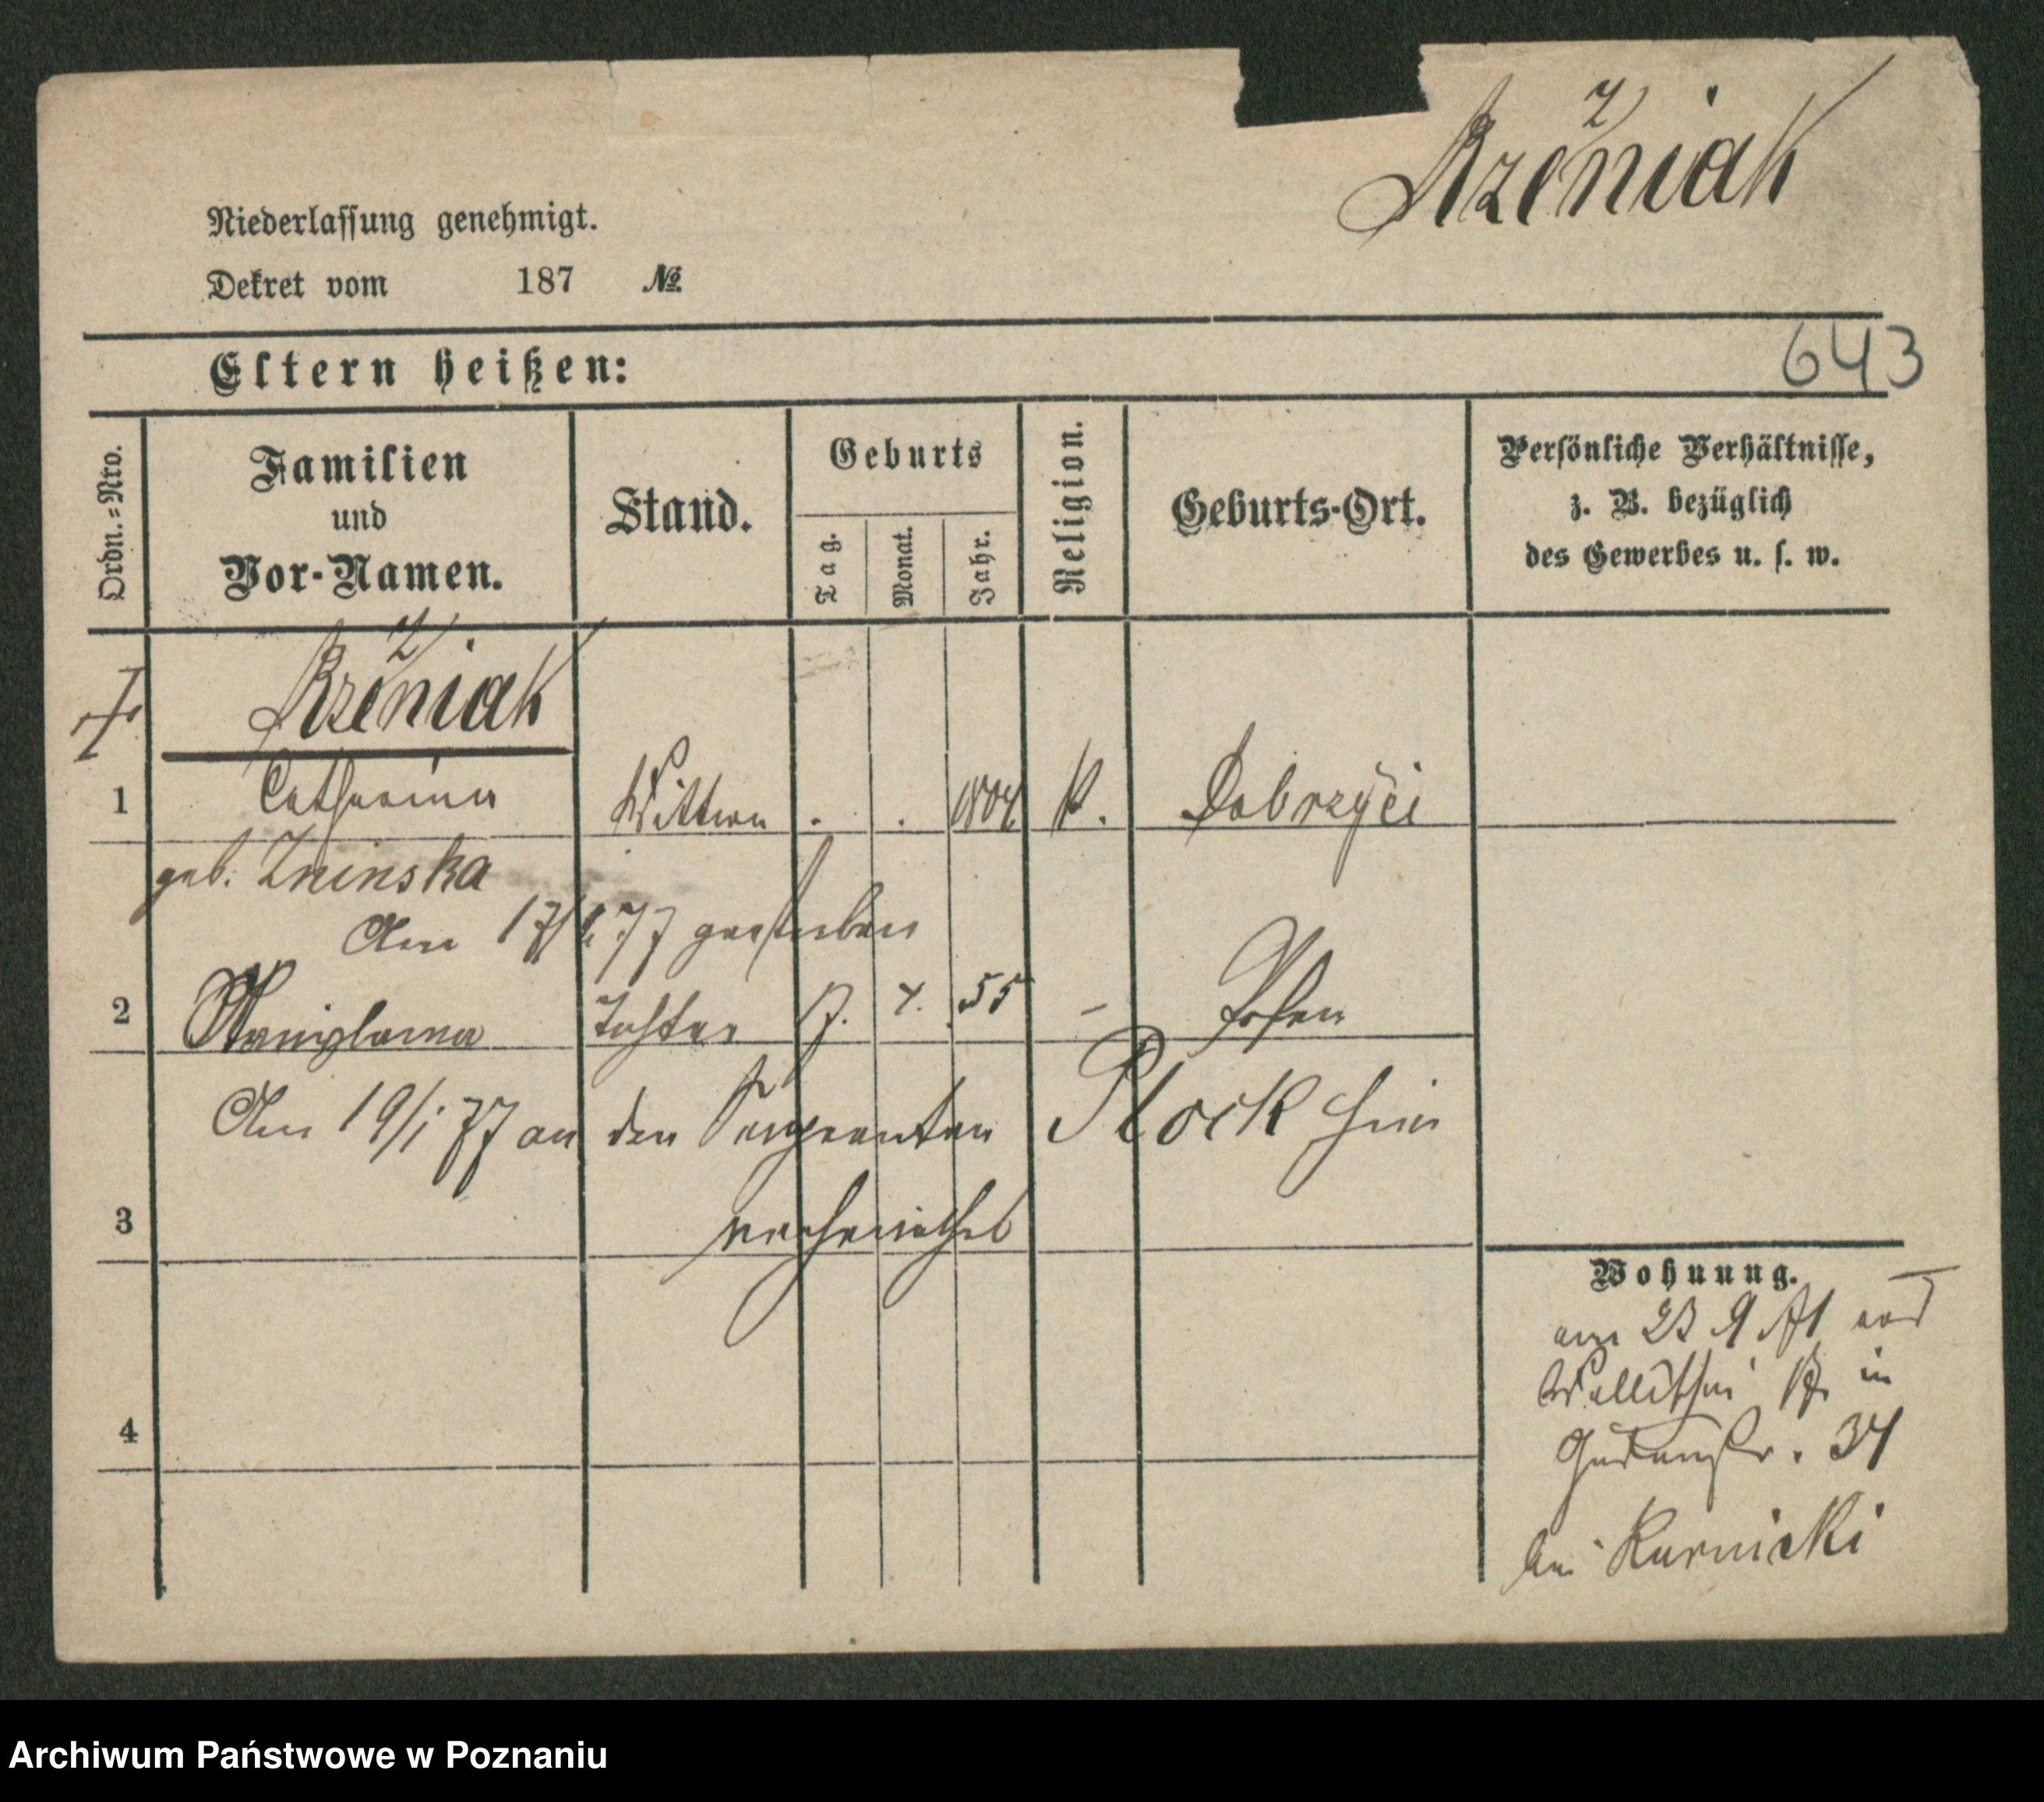 Rzeźniak
Niederlassung genehmigt.
Dekret vom 187 №
643
Eltern heißen:
Ordn.=Nro.
Familien
und
Vor-Namen.
Stand.
Geburts
Tag.
Monat.
Jahr.
Religion.
Geburts-Ort.
Persönliche Verhältnisse,
z. B. bezüglich
des Gewerbes u. s. w.
1 Catharina Wittwe . . 1804 K.
geb. Zninska
Am 17/ 77 gestorben
2 Stanislawa Tochter 7. 4. 55 - Posen
Am 19/1 77 an den Sergeanten Plock hier
verheirathet
3
4
Wohnung.
am 23 9 71 von
Wallischei in
34
bei Kurnicki
Archiwum Państwowe w Poznaniu